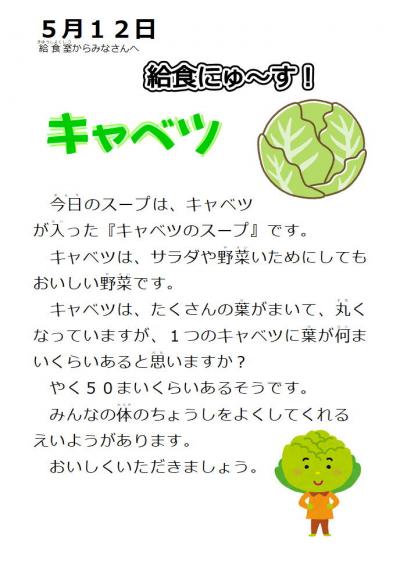 ５月１２日
給食室からみなさんへ
給食にゅ～す！
キャベツ
今日のスープは、キャベツ
が入った『キャベツのスープ』です。
キャベツは、サラダや野菜いためにしても
おいしい野菜です。
キャベツは、たくさんの葉がまいて、丸く
なっていますが、１つのキャベツに葉が何ま
いくらいあると思いますか？
やく５０まいくらいあるそうです。
みんなの体のちょうしをよくしてくれる
えいようがあります。
おいしくいただきましょう。